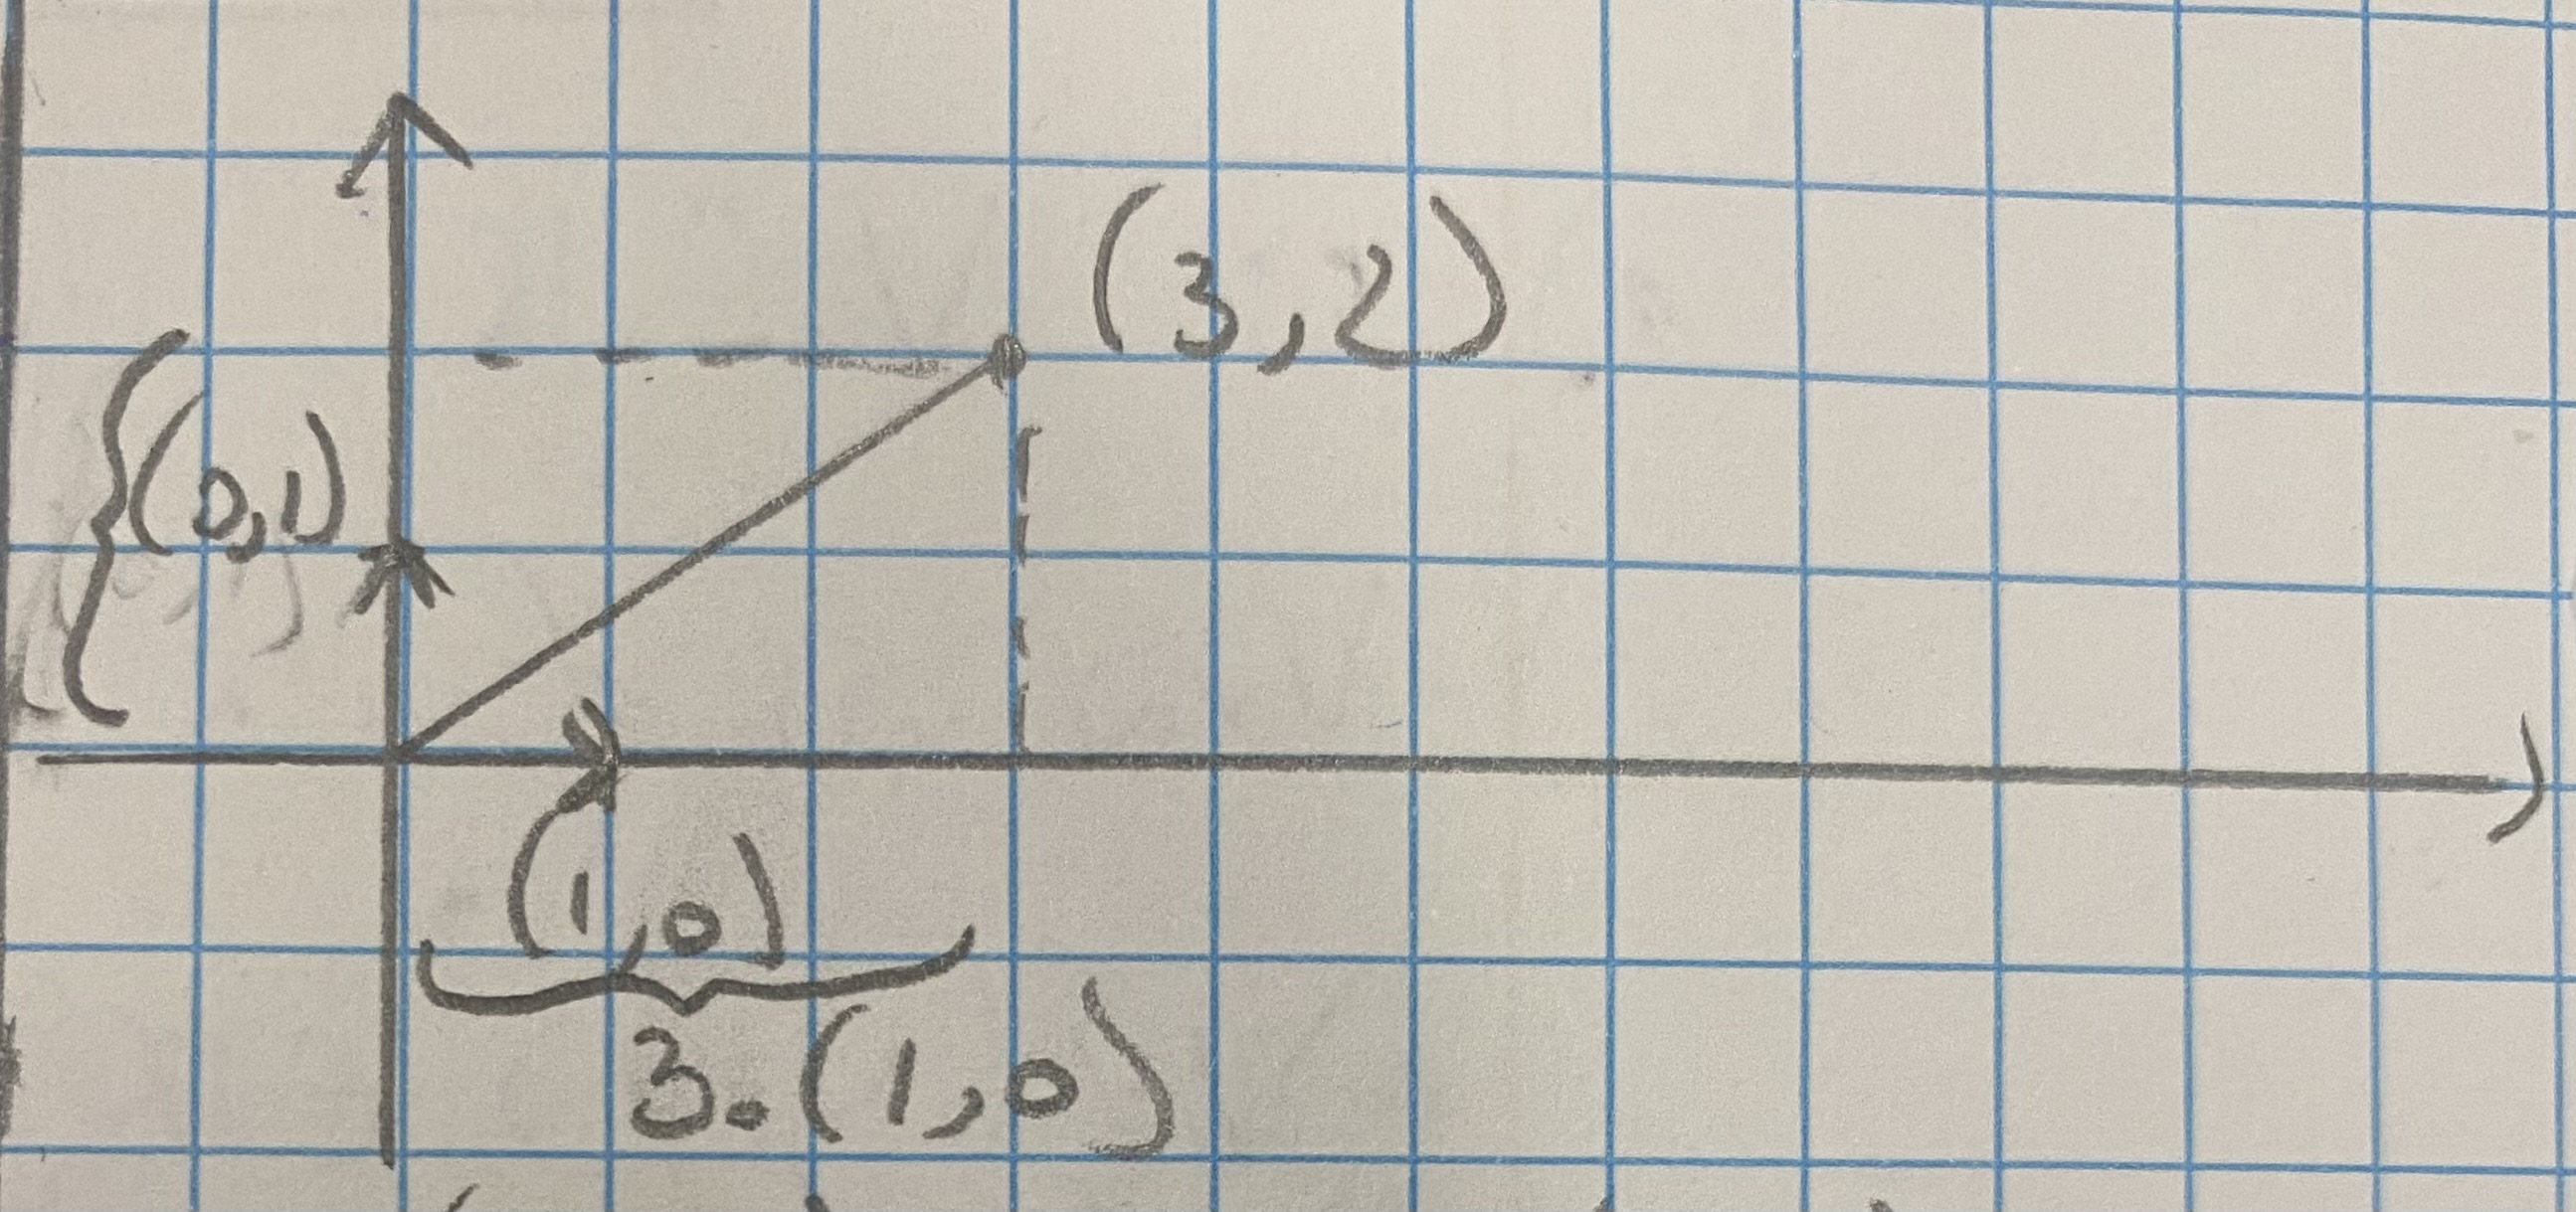 (3,2)
(0,1)
(1,0)
3.(1,0)